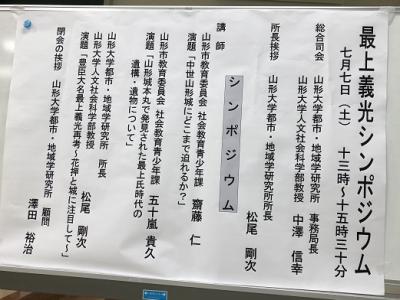 最上義光シンポジウム
七月七日(土) 十三時~十五時三十分
総合司会 山形大学都市・地域学研究所 事務局長
山形大学人文社会科学部教授 中澤 信幸
所長挨拶 山形大学都市・地域学研究所所長
松尾 剛次
シンポジウム
講師
山形市教育委員会 社会教育青少年課 齋藤 仁
演題「中世山形城にどこまで迫れるか?」
山形市教育委員会 社会教育青少年課 五十嵐 貴久
演題「山形城本丸で発見された最上氏時代の
遺構・遺物について」
山形大学都市・地域学研究所 所長
山形大学人文社会科学部教授 松尾 剛次
演題「豊臣大名最上義光再考~花押と城に注目して~」
閉会の挨拶 山形大学都市・地域学研究所 顧問
澤田 裕治